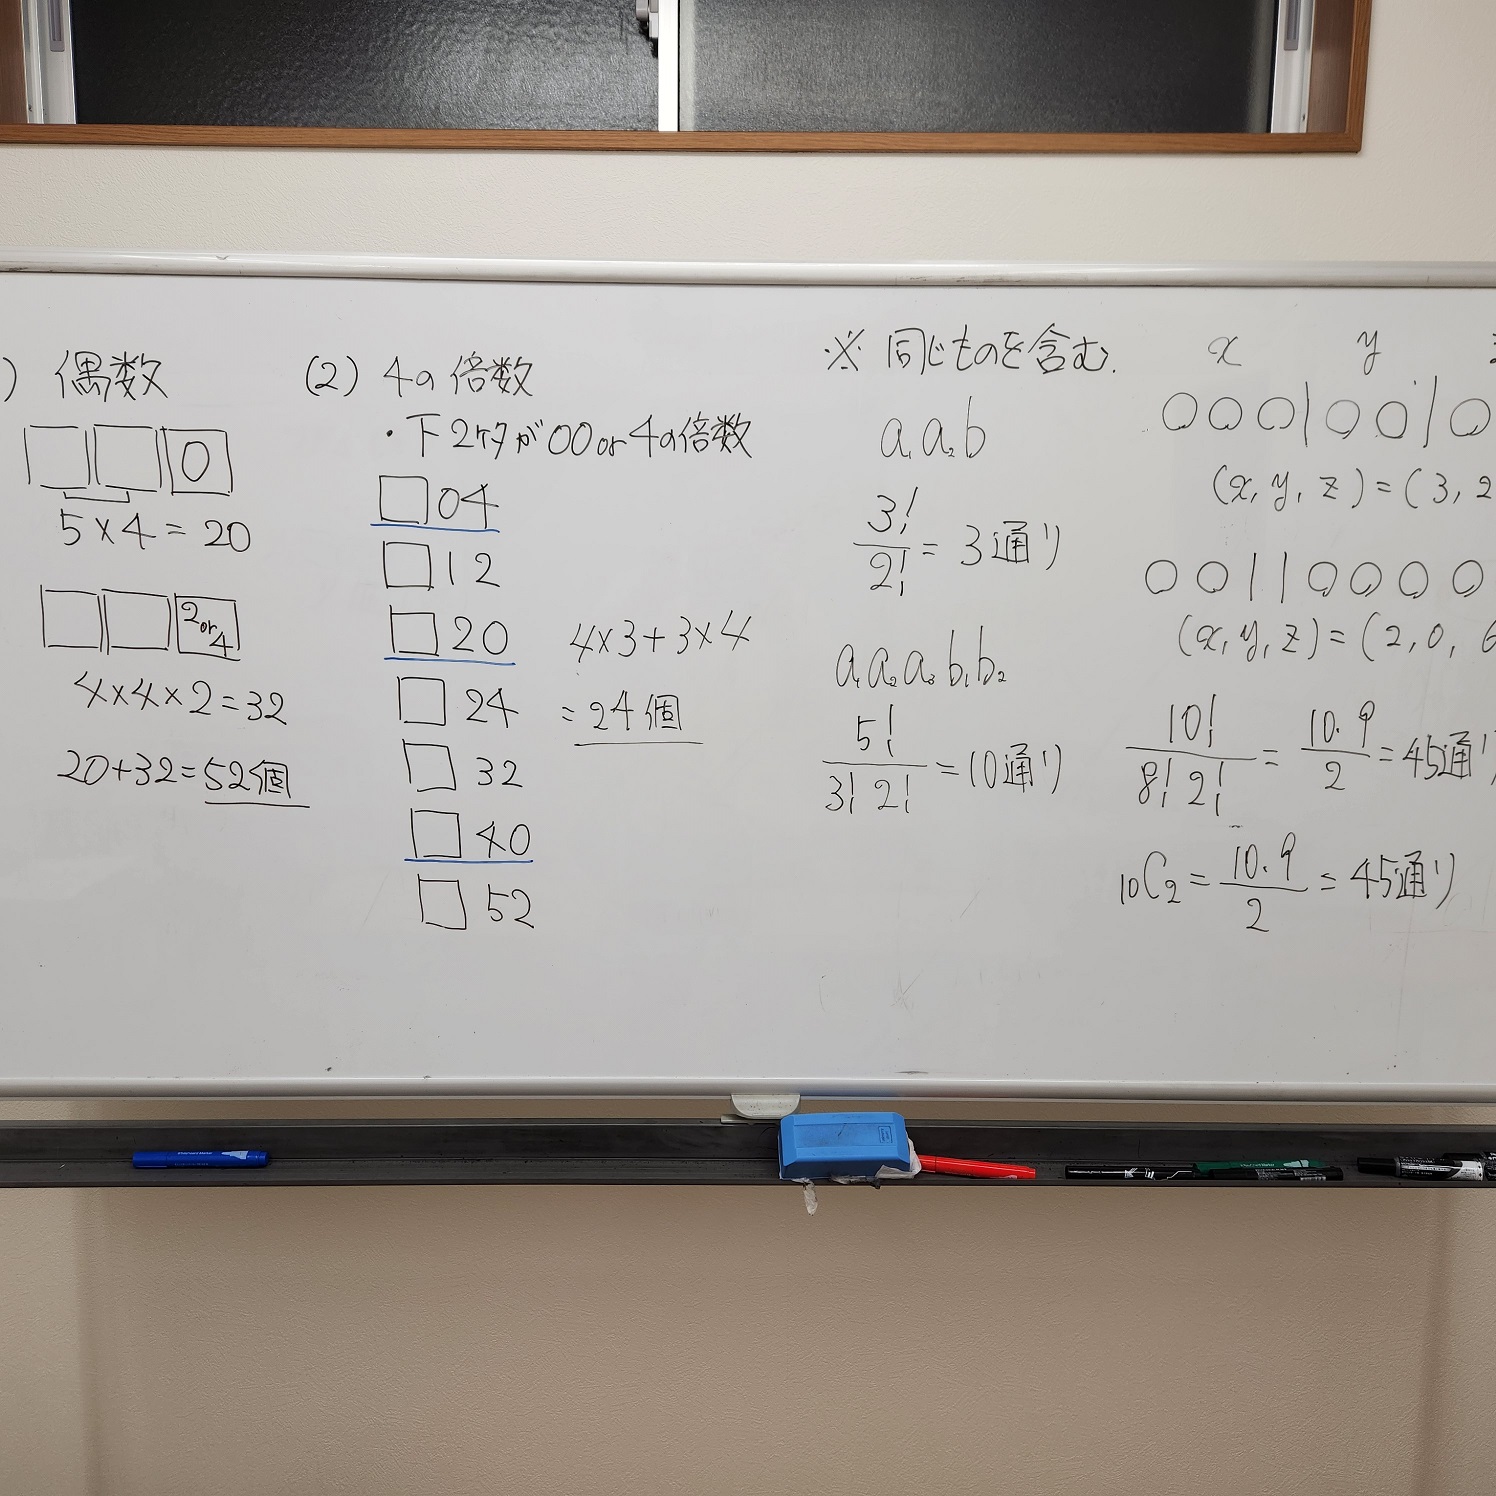 ) 偶数
0
5×4=20
2or4
4×4×2=32
20+32=52個
(2) 4の倍数
・下2ケタが00or4の倍数
□04
□12
□20
□24
□32
□40
□52
4×3+3×4
=24個
※ 同じものを含む.
a₁a₂b
3!/2! = 3通り
a₁a₂a₃b₁b₂
5!/3!2! = 10通り
x y
○○○|○○|○
(x, y, z) = (3, 2
○○||○○○○
(x, y, z) = (2, 0, 6
10!/8!2! = 10・9/2 = 45通り
₁₀C₂ = 10・9/2 = 45通り